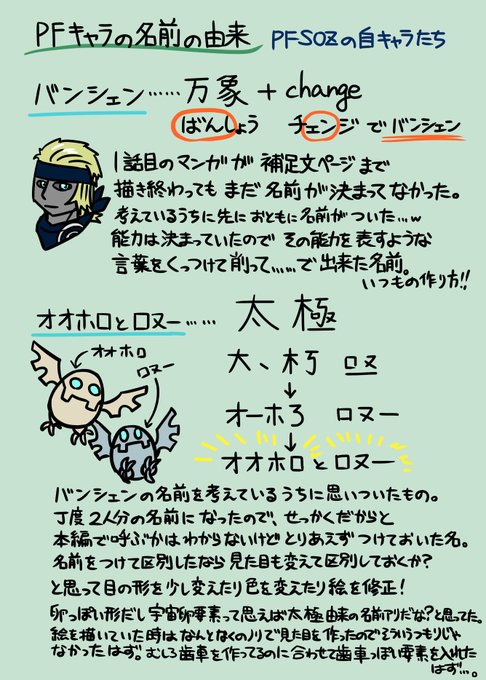 PFキャラの名前の由来 PFSOZの自キャラたち
バンシェン……万象 + change
ばんしょう チェンジ で バンシェン
1話目のマンガが 補足文ページまで
描き終わっても まだ 名前が決まってなかった。
考えているうちに先におともに名前がついた…w
能力は決まっていたので その能力を表すような
言葉をくっつけて削って……で出来た名前。
いつもの作り方!!
オオホロとロヌー…… 太極
オオホロ
ロヌー
大、朽 ロヌ
↓
オーホろ ロヌー
↓
オオホロとロヌー
バンシェンの名前を考えているうちに思いついたもの。
丁度2人分の名前になったので、せっかくだからと
本編で呼ぶかはわからないけど とりあえずつけておいた名。
名前をつけて区別したなら 見た目も変えて区別しておくか?
と思って目の形を少し変えたり色を変えたり絵を修正!
卵っぽい形だし宇宙卵要素って思えば太極由来の名前アリだな?と思ってた。
絵を描いていた時はなんとなくのノリで見た目を作ったのでそういうつもりじゃ
なかったはず。むしろ歯車を作ってるのに合わせて歯車っぽい要素を入れた
はず…。